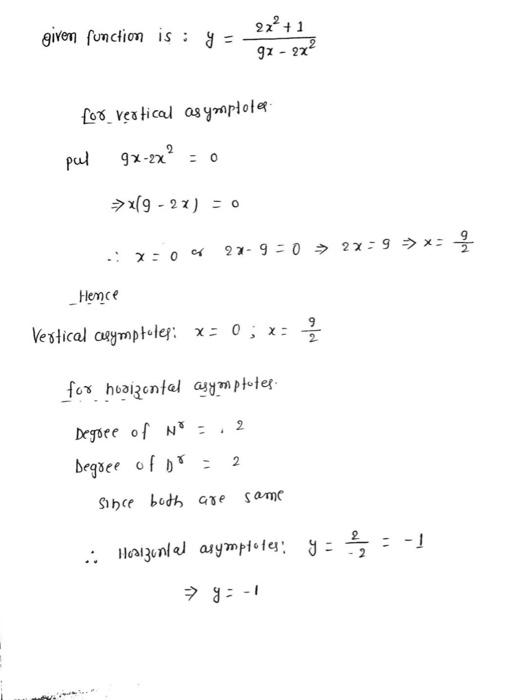 given function is : y = (2x² + 1)/(9x - 2x²)
for vertical asymptotes.
put 9x-2x² = 0
⇒ x(9 - 2x) = 0
∴ x = 0 or 2x-9 = 0 ⇒ 2x = 9 ⇒ x = 9/2
Hence
Vertical asymptotes: x = 0 ; x = 9/2
for horizontal asymptotes.
Degree of Nʳ = . 2
Degree of Dʳ = 2
Since both are same
∴ Horizontal asymptotes: y = 2/-2 = -1
⇒ y = -1